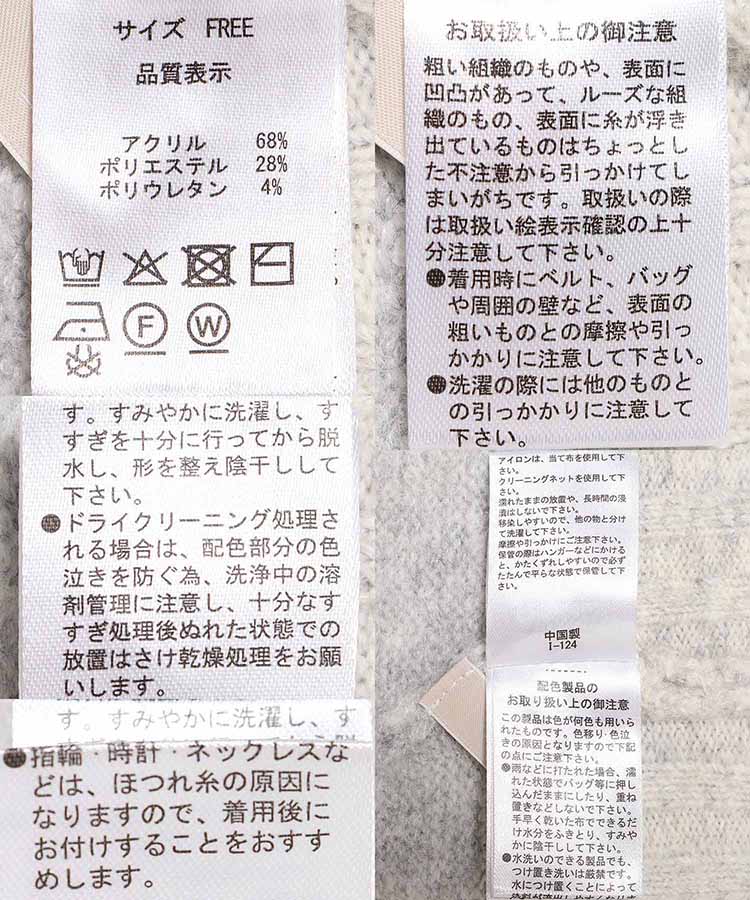 サイズ FREE
品質表示
アクリル 68%
ポリエステル 28%
ポリウレタン 4%
F
W
す。すみやかに洗濯し、す
すぎを十分に行ってから脱
水し、形を整え陰干しして
下さい。
●ドライクリーニング処理さ
れる場合は、配色部分の色
泣きを防ぐ為、洗浄中の溶
剤管理に注意し、十分なす
すぎ処理後ぬれた状態での
放置はさけ乾燥処理をお願
いします。
す。すみやかに洗濯し、す
●指輪・時計・ネックレスな
どは、ほつれ糸の原因に
なりますので、着用後に
お付けすることをおすす
めします。
お取扱い上の御注意
粗い組織のものや、表面に
凹凸があって、ルーズな組
織のもの、表面に糸が浮き
出ているものはちょっとし
た不注意から引っかけてし
まいがちです。取扱いの際
は取扱い絵表示確認の上十
分注意して下さい。
●着用時にベルト、バッグ
や周囲の壁など、表面の
粗いものとの摩擦や引っ
かかりに注意して下さい。
●洗濯の際には他のものと
の引っかかりに注意して
下さい。
アイロンは、当て布を使用して下
さい。
クリーニングネットを使用して下
さい。
濡れたままの放置や、長時間の浸
漬はしないで下さい。
移染しやすいので、他の物と分け
て洗濯して下さい。
摩擦や引っかけにご注意下さい。
保管の際はハンガーなどにかける
と、かたくずれしやすいので必ず
たたんで平らな状態で保管して下
さい。
中国製
I-124
配色製品の
お取り扱い上の御注意
この製品は色が何色も用いら
れたものです。色移り・色泣
きの原因となりますので下記
の点にご注意下さい。
●雨などに打たれた場合、濡
れた状態でバッグ等に押し
込んだままにしたり、重ね
置きなどしないで下さい。
手早く乾いた布でできるだ
け水分をふきとり、すみや
かに陰干しして下さい。
●水洗いのできる製品でも、
つけ置き洗いは厳禁です。
水につけ置くことによって
染料が流出しやすくなりま